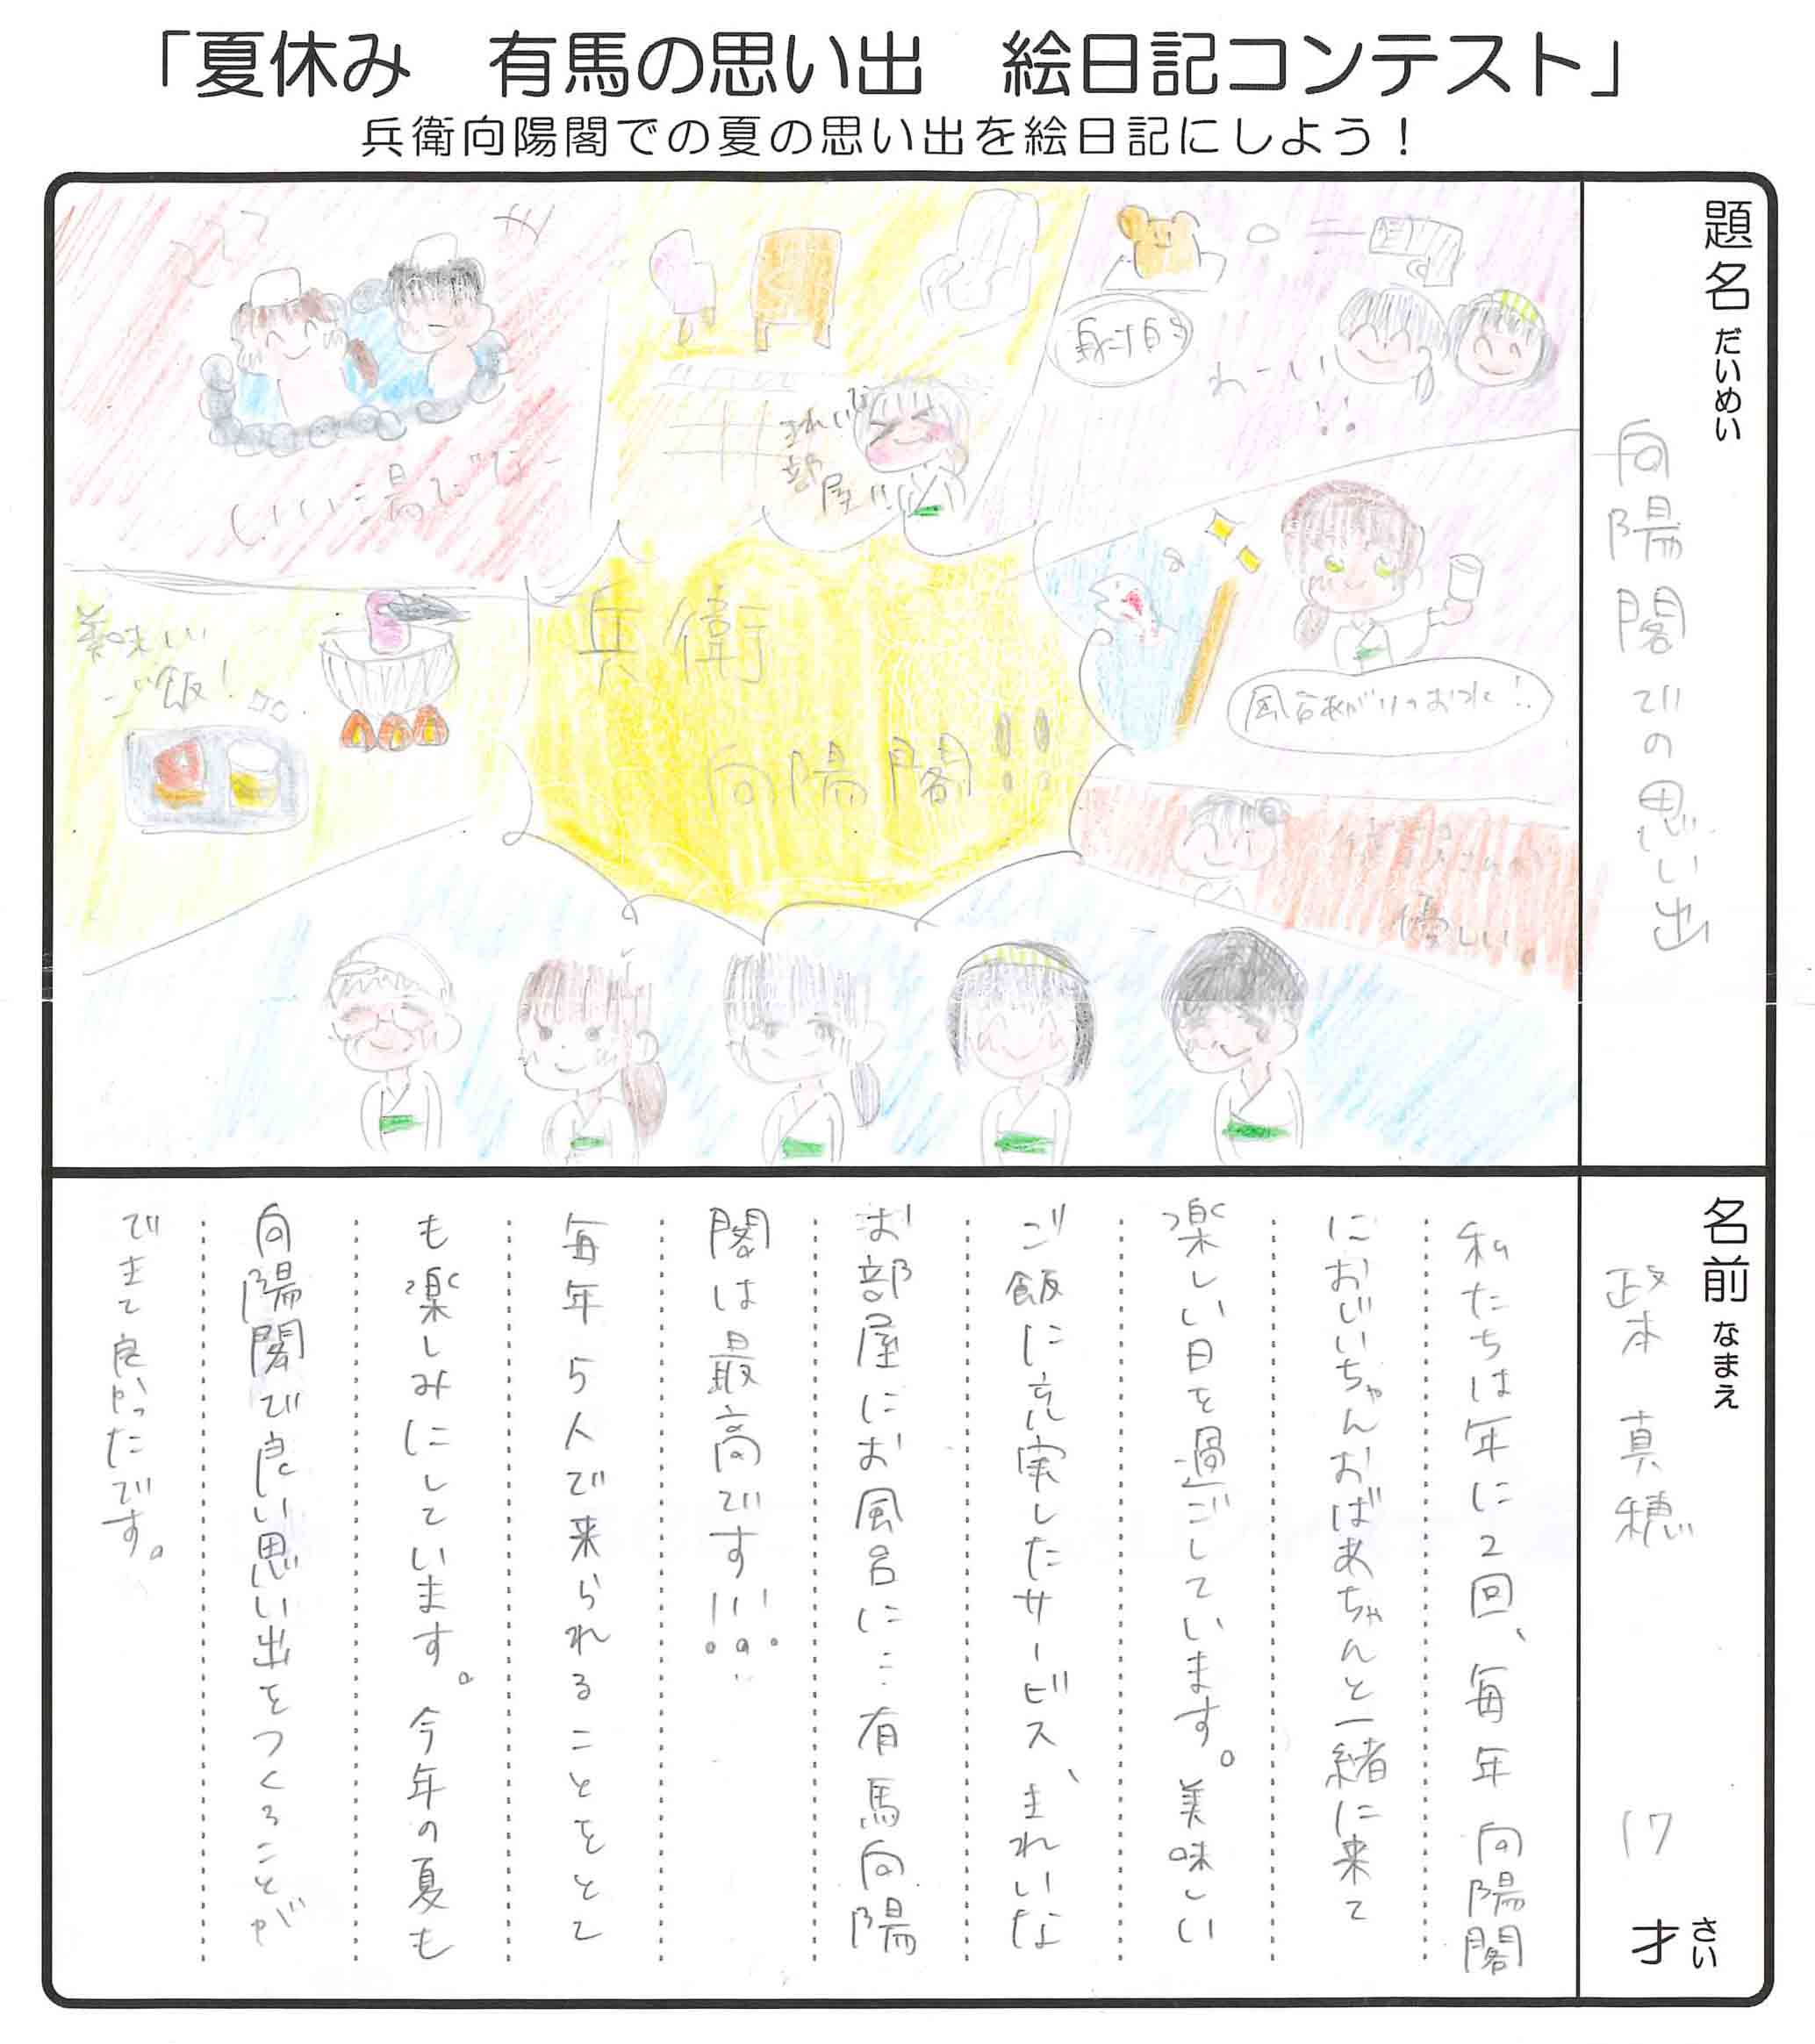 「夏休み 有馬の思い出 絵日記コンテスト」
兵衛向陽閣での夏の思い出を絵日記にしよう！
題名 だいめい
向陽閣での思い出
わーい!!
きれいな
部屋!!
いい湯でなー
風呂あがりのお水!
兵衛
向陽閣!!
美味しい
ご飯!
優しい
名前 なまえ
政本 真穂
17才 さい
私たちは年に2回、毎年向陽閣
におじいちゃんおばあちゃんと一緒に来て
楽しい日を過ごしています。美味しい
ご飯に充実したサービス、きれいな
お部屋にお風呂に…有馬向陽
閣は最高です!!!
毎年5人で来られることをとて
も楽しみにしています。今年の夏も
向陽閣で良い思い出をつくることが
できて良かったです。